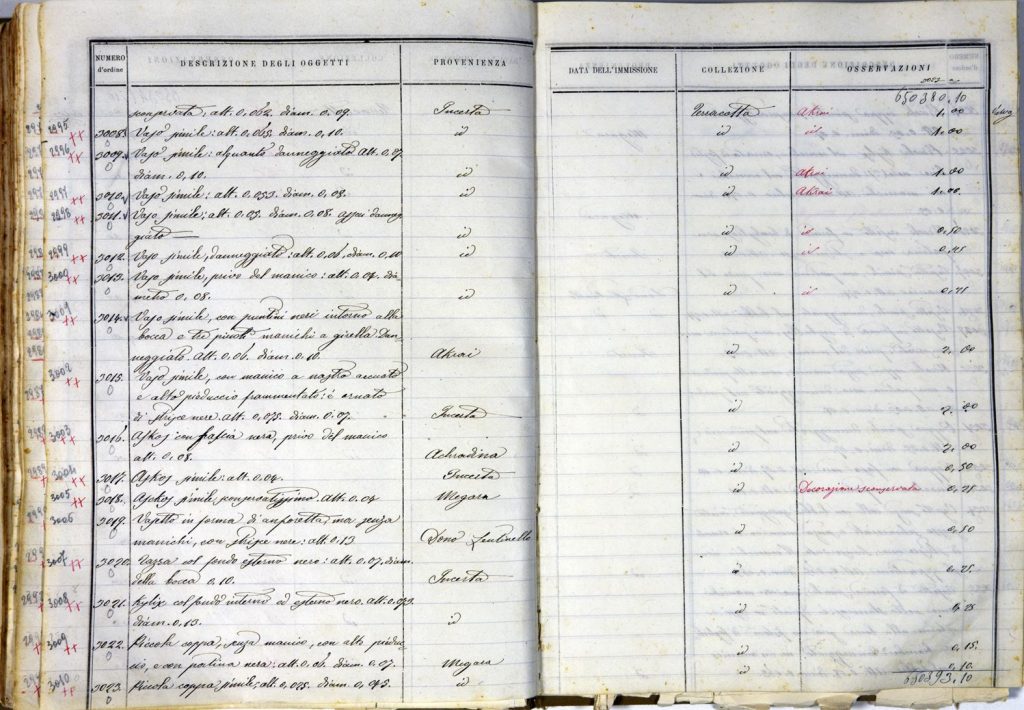 NUMERO d'ordine DESCRIZIONE DEGLI OGGETTI PROVENIENZA DATA DELL'IMMISSIONE COLLEZIONE OSSERVAZIONI
650380.10
sconservato, alt. 0,062. diam. 0,09. Incerta Terracotta Akrai 1.00
3008. Vaso simile: alt. 0,065. diam. 0,10. id id id 1.00
3009. Vaso simile: alquanto danneggiato alt. 0,07.
diam. 0,10. id id Akrai 1.00
3010. Vaso simile: alt. 0,053. diam. 0,08. id id Akrai 1.00
3011. Vaso simile: alt. 0,05. diam. 0.08 assai danneg
giato id id id 0,50
3012. Vaso simile, danneggiato: alt. 0,06, diam. 0,10 id id id 0,25
3013. Vaso simile, privo del manico: alt. 0,07. dia
metro 0,08. id id id
3014. Vaso simile, con puntini neri intorno alla
bocca e tre manichi a girella. Dan
neggiato. Alt. 0,06. diam. 0.10. Akrai id 2.00
3015. Vaso simile, con manico a nastro arcuato
e alto pieduccio frammentato: è ornato
di strisce nere. alt. 0,075. diam. 0.07. Incerta id 2.00
3016. Askos con fascia nera, privo del manico
alt. 0,08. Achradina id 2,00
3017. Askos simile: alt. 0.04. Incerta id 0,50
3018. Askos simile sconservatissimo. alt. 0.04 Megara id Decorazione sconservata 0,25
3019. Vasetto in forma di anforetta, ma senza
manichi, con strisce nere: alt. 0.13 Dono Lentinello id 0,50
3020. Tazza col fondo esterno nero: alt. 0.07, diam.
della bocca 0,10. Incerta id 0,25
3021. Kylix col fondo interno ed esterno nero. alt. 0,053.
diam. 0.13. id id 0,25
3022. Piccola coppa, senza manico, con alto piedu
cio, e con patina nera: alt. 0.06. diam. 0.07. Megara id 0,15
3023. Piccola coppa simile: alt. 0,035. diam. 0,075. id id 0.10
650393.10
2995
2996
2997
2998
2999
3000
3001
3002
3003
3004
3005
3006
3007
3008
3009
3010